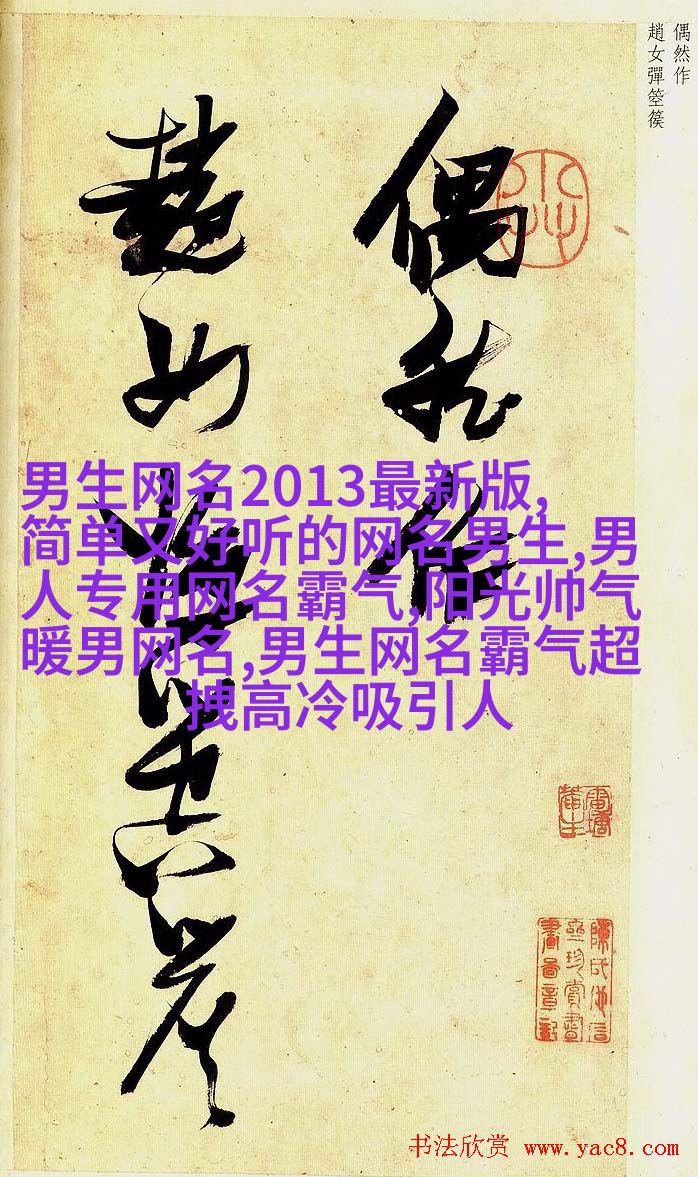 偶然作
趙女彈箜篌
偶然作
趙女彈箜篌
男生网名2013最新版,
简单又好听的网名男生,男
人专用网名霸气,阳光帅气
暖男网名,男生网名霸气超
拽高冷吸引人
书法欣赏 www.yac8.com